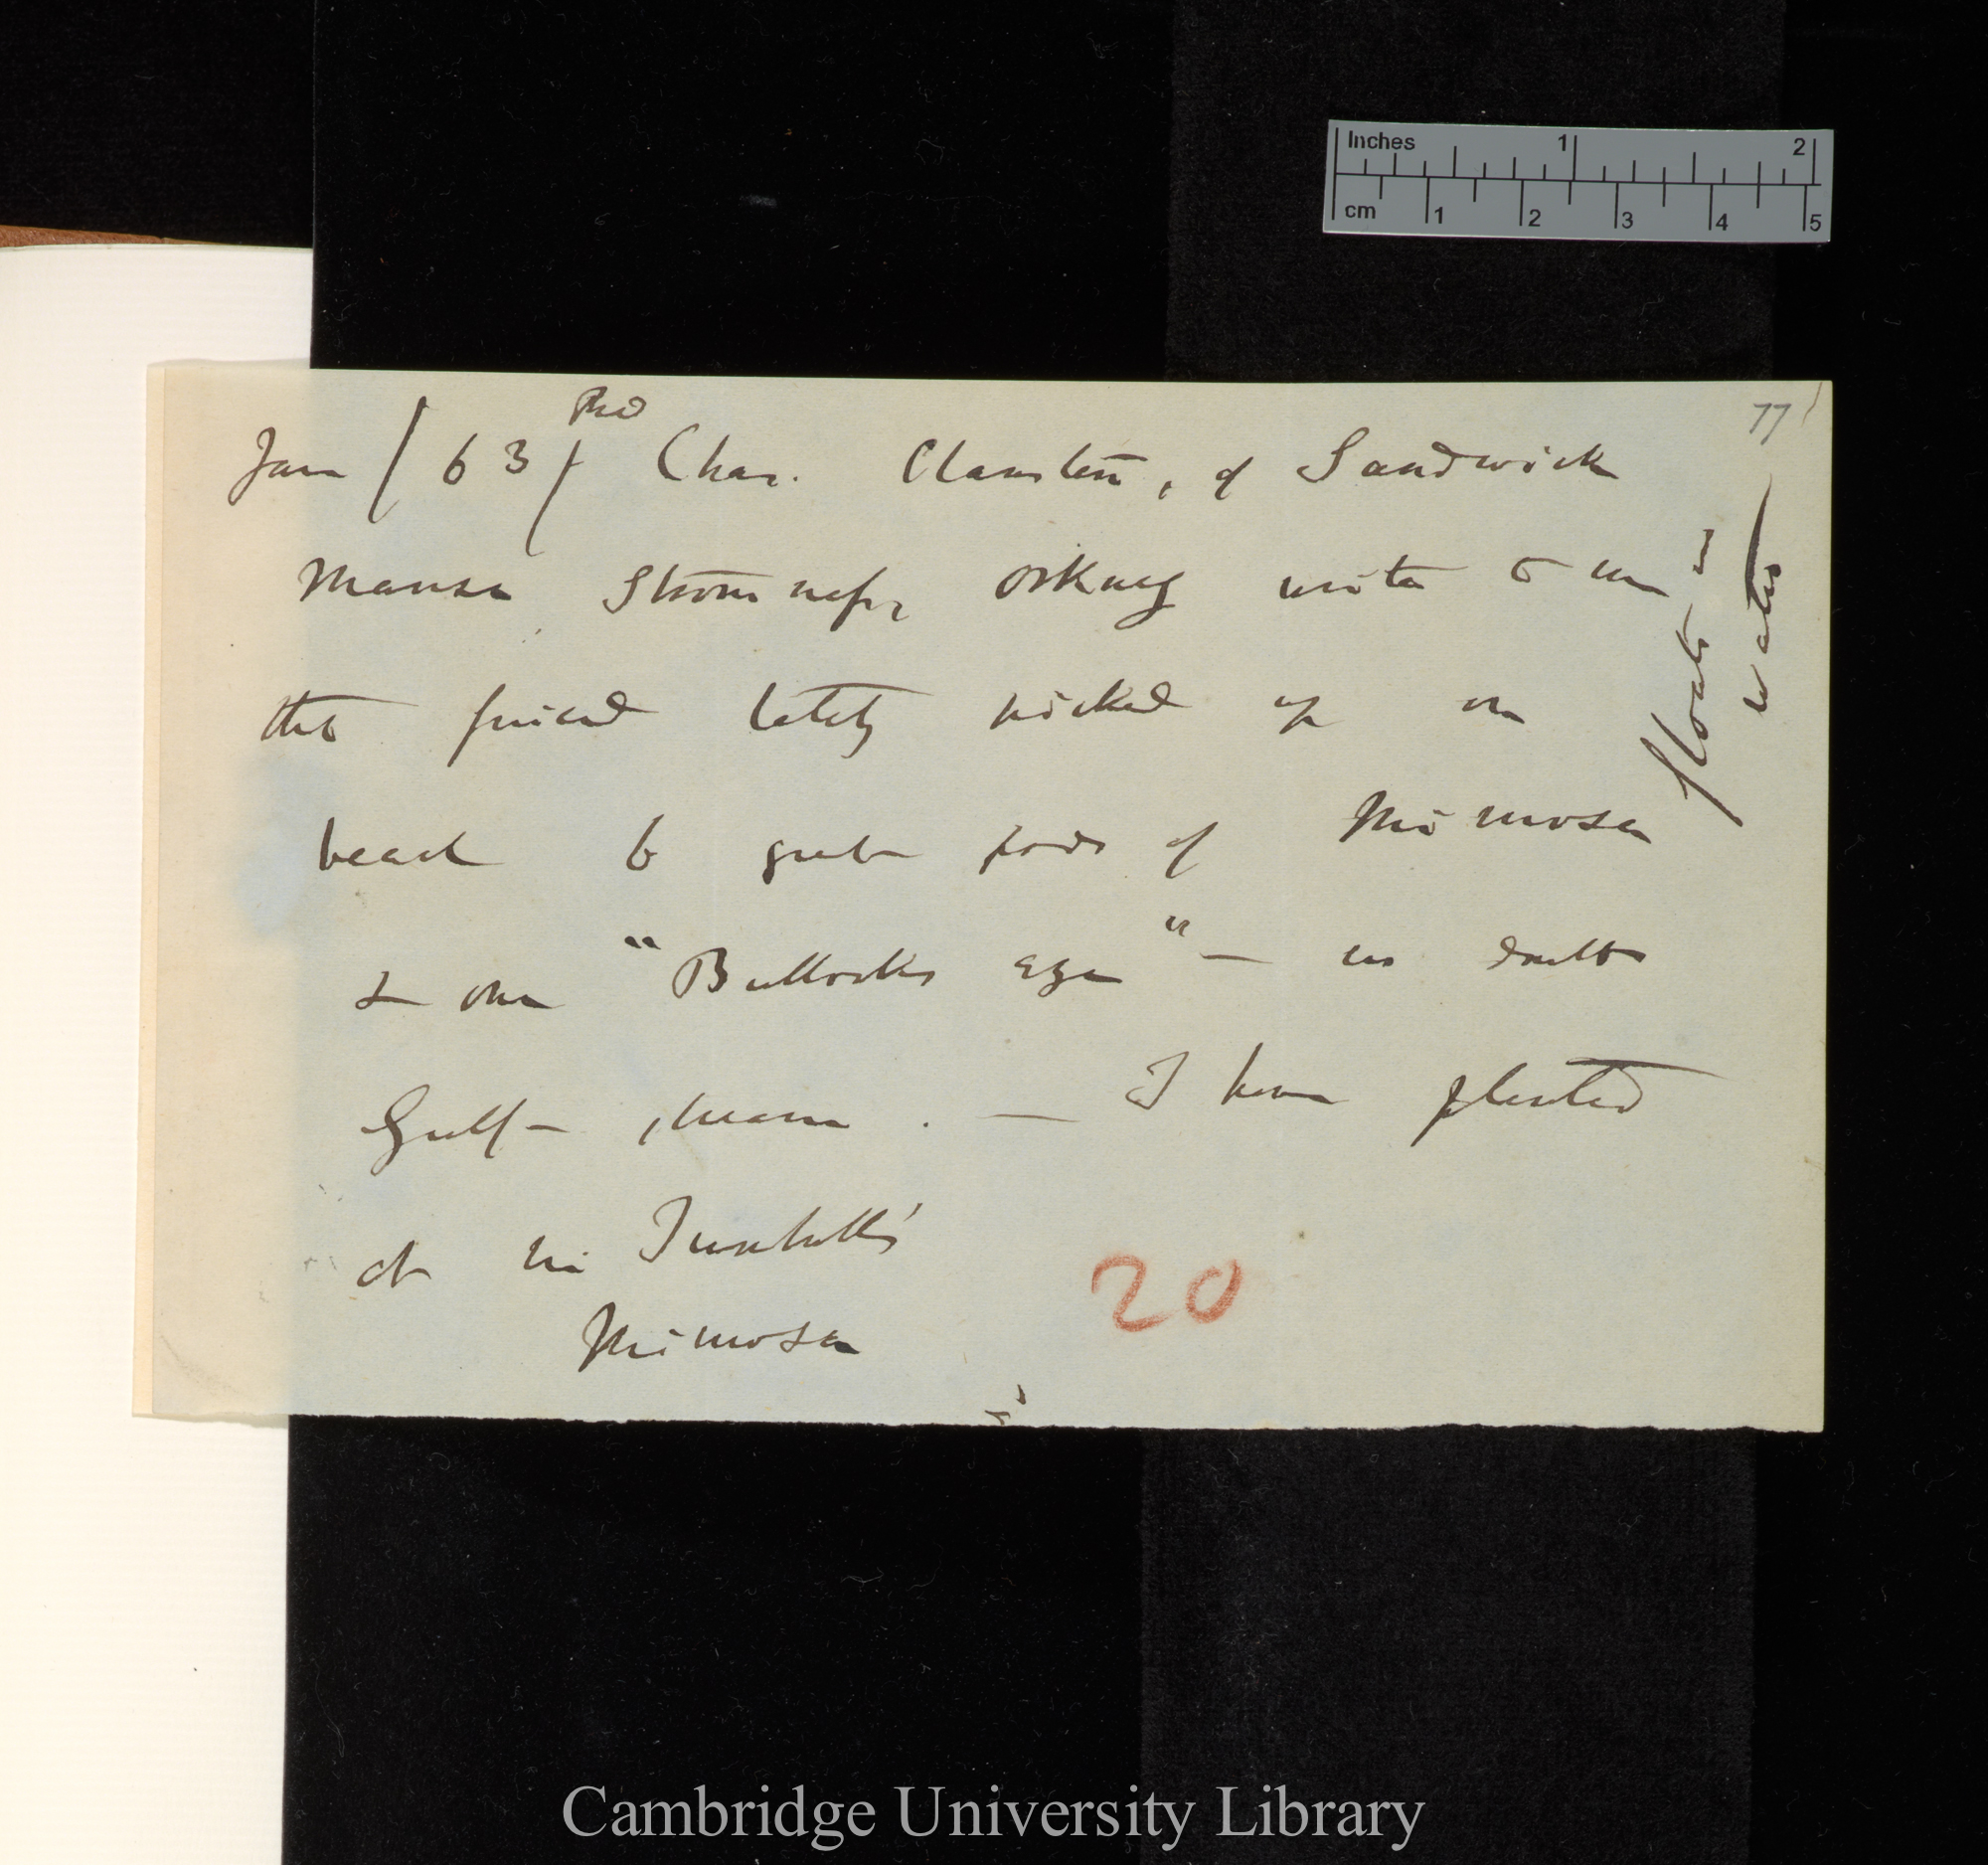 Inches 1 2
cm 1 2 3 4 5
77
Revd
Jan / 63 / Chas. Clouston, of Sandwick
Manse Stromness, Orkney writes to me
that friend lately picked up on
beach 6 great pods of Mimosa
& one "Bullocks eye" — no doubt
Gulf-stream. — I have planted
at Mr Turnbulls'
Mimosa
floats in
water
20
Cambridge University Library